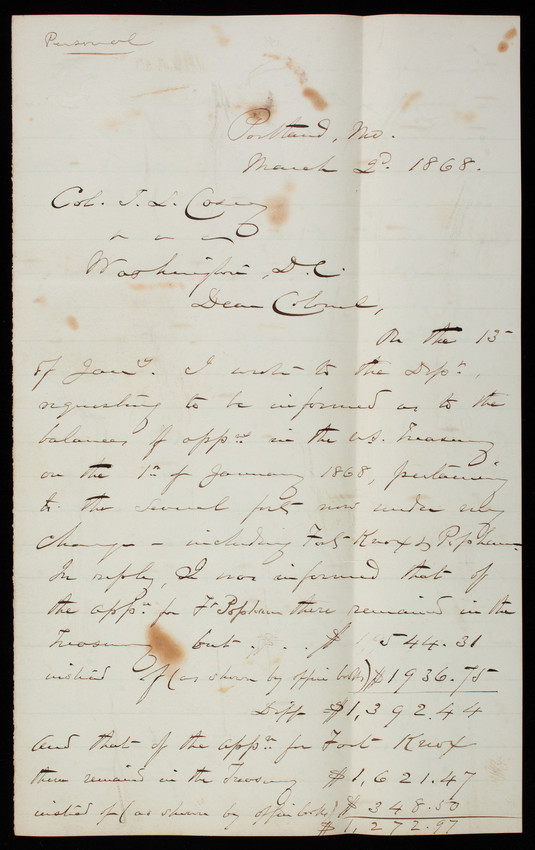 Personal
Portland, Me.
March 2d. 1868.
Col. T. L. Casey
Washington, D.C.
Dear Colonel,
On the 15
of Jany. I wrote to the Dept.,
requesting to be informed as to the
balances of appns in the U.S. Treasury
on the 1st of January 1868, pertaining
to the several forts now under my
charge - including Forts Knox & Popham.
In reply, I was informed that of
the appn for Ft Popham there remained in the
Treasury but . . . $ 544.31
instead of (as shown by office books) $1936.75
Diff = $1,392.44
and that of the appn for Fort Knox
there remained in the Treasury $1,621.47
instead of (as shown by office books) $ 348.50
$1,272.97